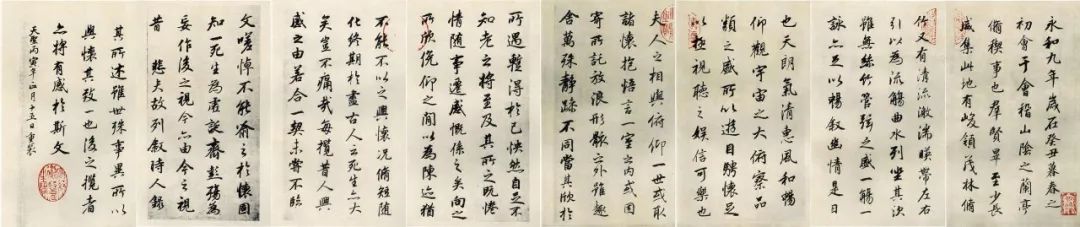 永和九年歲在癸丑暮春之
初會于會稽山陰之蘭亭
脩禊事也群賢畢至少長
咸集此地有峻領茂林脩
竹又有清流激湍暎帶左右
引以為流觴曲水列坐其次
雖無絲竹管弦之盛一觴一
詠亦足以暢敘幽情是日
也天朗氣清惠風和暢
仰觀宇宙之大俯察品
類之盛所以遊目騁懷足
以極視聽之娛信可樂也
夫人之相與俯仰一世或取
諸懷抱悟言一室之內或因
寄所託放浪形骸之外雖趣
舍萬殊靜躁不同當其欣於
所遇蹔得於己怏然自足不
知老之將至及其所之既惓
情隨事遷感慨係之矣向之
所欣俛仰之閒以為陳迹猶
不能不以之興懷況脩短隨
化終期於盡古人云死生亦大
矣豈不痛哉每攬昔人興
感之由若合一契未嘗不臨
文嗟悼不能喻之於懷固
知一死生為虛誕齊彭殤為
妄作後之視今亦由今之視
昔 悲夫故列敘時人錄
其所述雖世殊事異所以
興懷其致一也後之攬者
亦將有感於斯文
天聖丙寅年正月十五日重裝